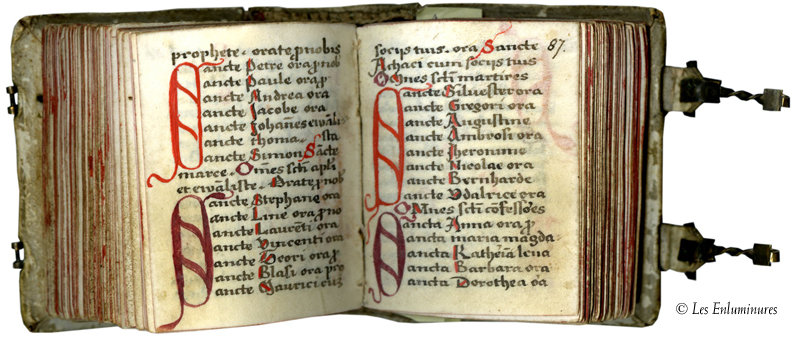 prophete · orate p nobis
Sancte Petre ora p nob
ancte Paule ora p
ancte Andrea ora
ancte Jacobe ora
ancte Johañes ewãlis
ancte thoma · sta
ancte Simon Sãcte
marce · Om̃es scti apłi
et ewãliste · Orate p nob
Sancte Stephane ora
ancte Line ora p no
ancte Laurẽti ora
ancte Vincenti ora
ancte Jeori ora p
ancte Blasi ora pro
ancte Maurici cũ
socijs tuis · ora Sancte 87.
Achaci cum socijs tuis
Om̃es scti martires
Sancte Silvester ora
ancte Gregori ora
ancte Augustine
ancte Ambrosi ora
ancte Iheronime
ancte Nicolae ora
ancte Bernharde
ancte Vdalrice ora
OMnes scti cõfessões
Sancta Anna ora p
ancta maria magda
ancta Katheĩa lena
ancta Barbara ora
ancta Dorothea oa
© Les Enluminures